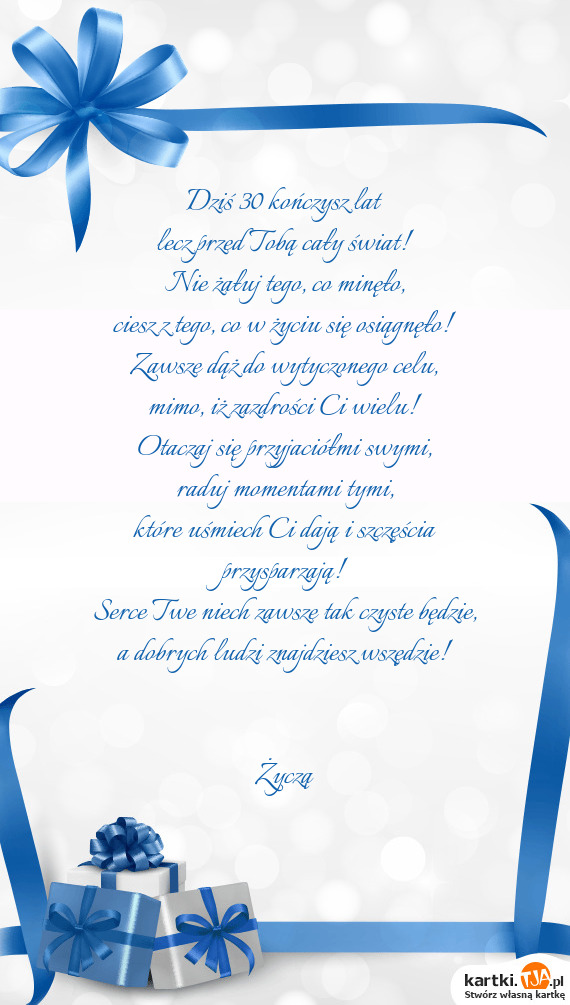 Dziś 30 kończysz lat
lecz przed Tobą cały świat!
Nie żałuj tego, co minęło,
ciesz z tego, co w życiu się osiągnęło!
Zawsze dąż do wytyczonego celu,
mimo, iż zazdrości Ci wielu!
Otaczaj się przyjaciółmi swymi,
raduj momentami tymi,
które uśmiech Ci dają i szczęścia
przysparzają!
Serce Twe niech zawsze tak czyste będzie,
a dobrych ludzi znajdziesz wszędzie!
Życzą
kartki.TJA.pl
Stwórz własną kartkę